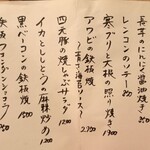 長芋のにんにく醤油焼き 580
レンコンのソテー 580
寒ブリと大根の照り焼き 1300
アワビの鉄板焼
〜青さ海苔ソース〜 2,200
四元豚の焼しゃぶサラダ 1200
イカとししとうの麻辣炒め 1200
黒ベーコンの鉄板焼 1500
鉄板フォンダンショコラ